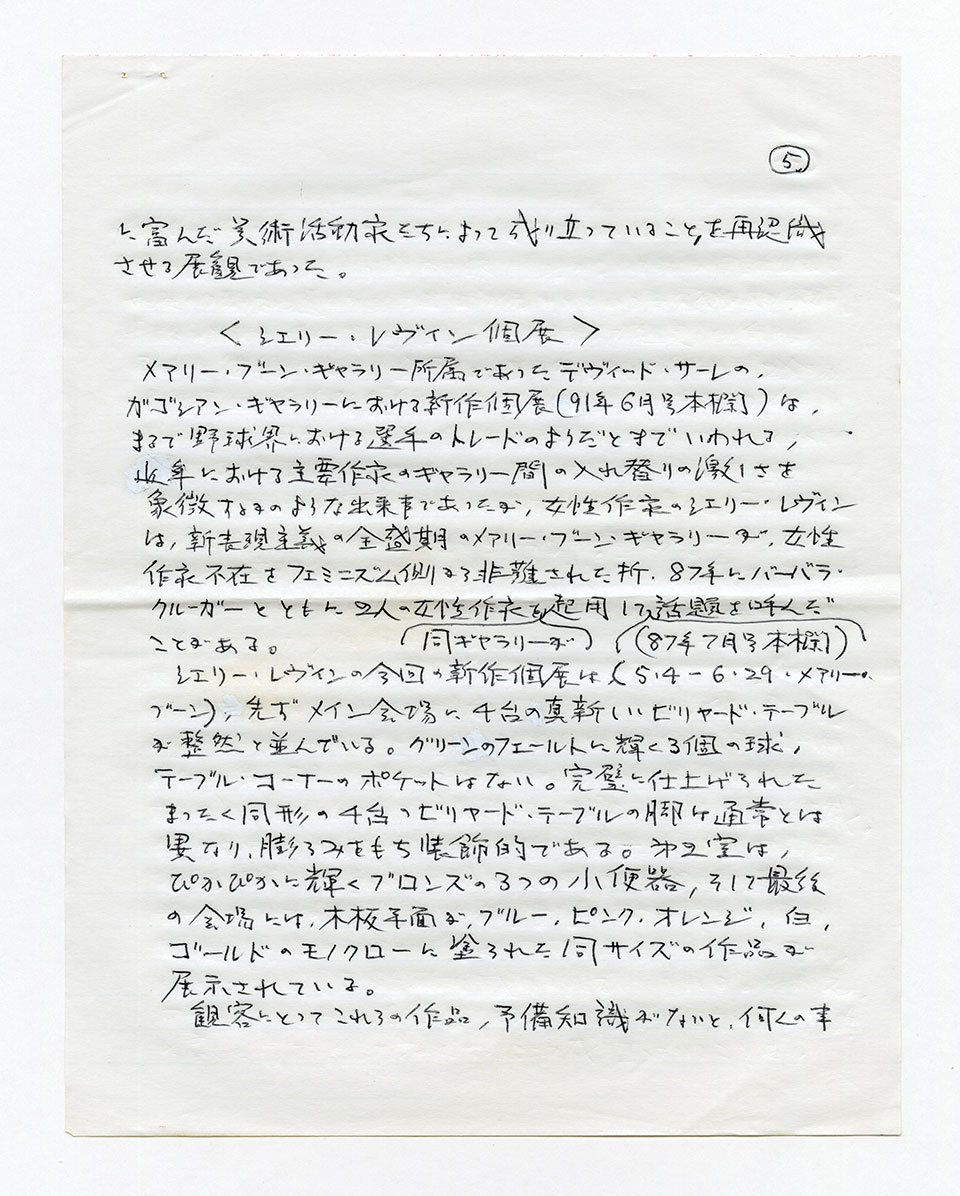 5
に富んだ美術活動家たちによって成り立っていることを再認識
させる展観であった。
〈シェリー・レヴィン個展〉
メアリー・ブーン・ギャラリー所属であったデヴィッド・サーレの,
ガゴシアン・ギャラリーにおける新作個展(91年6月号本欄)は,
まるで野球界における選手のトレードのようだとまでいわれる,
近年における主要作家のギャラリー間の入れ替りの激しさを
象徴するかのような出来事であったが, 女性作家のシェリー・レヴィン
は, 新表現主義の全盛期のメアリー・ブーン・ギャラリーが, 女性
作家不在をフェミニズム側から非難された折, 87年にバーバラ・
クルーガーとともに2人の女性作家を起用して話題を呼んだ
同ギャラリーが (87年7月号本欄)
ことがある。
シェリー・レヴィンの今回の新作個展は(5・4-6・29・メアリー・
ブーン), 先ずメイン会場に4台の真新しいビリヤード・テーブル
が整然と並んでいる。グリーンのフェールトに輝く3個の球,
テーブル・コーナーのポケットはない。完璧に仕上げられた
まったく同形の4台のビリヤード・テーブルの脚は通常とは
異なり, 膨らみをもち装飾的である。第2室は,
ぴかぴかに輝くブロンズの3つの小便器, そして最後
の会場には, 木板平面が, ブルー, ピンク, オレンジ, 白,
ゴールドのモノクロームに塗られた同サイズの作品が
展示されている。
観客にとってこれらの作品, 予備知識がないと, 何くの事